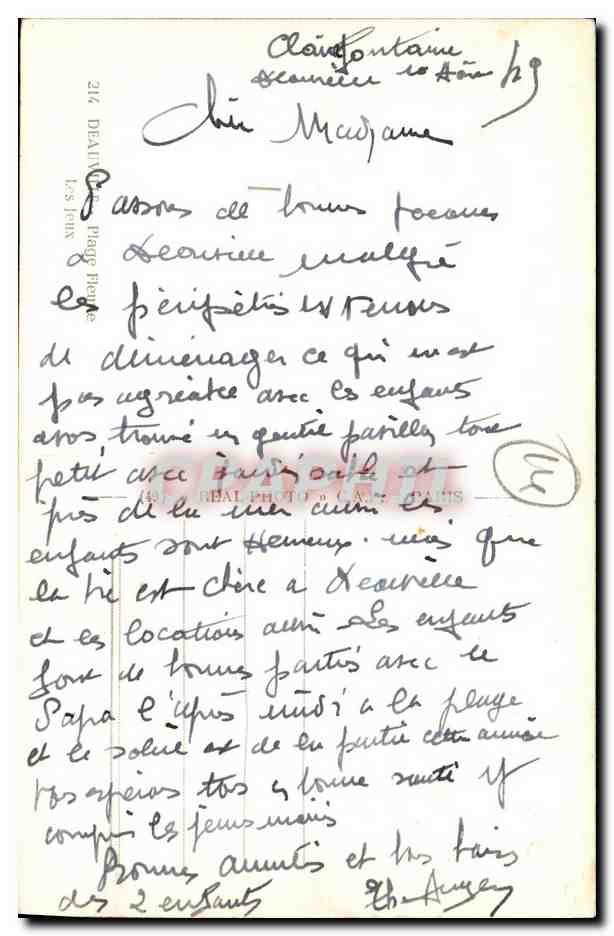 Clairefontaine
Deauville 10 Août 49
Chère Madame
Passons de bonnes vacances
a Deauville malgré
les péripéties
de déménager ce qui n'est
pas agréable avec les enfants
avons trouvé un gentil pavillon tout
petit avec sable et
près de la mer aussi les
enfants sont Heureux. mais que
la vie est chère a Deauville
et les locations aussi Les enfants
font de bonnes parties avec le
Papa l'après midi a la plage
et le soleil est de la partie cette année
Vous espérons tous en bonne santé y
compris les jeunes mariés
Bonnes amitiés et bons baisers
des 2 enfants
214 DEAUVILLE - Plage Fleurie
Les Jeux
REAL PHOTO » C.A.P. - PARIS